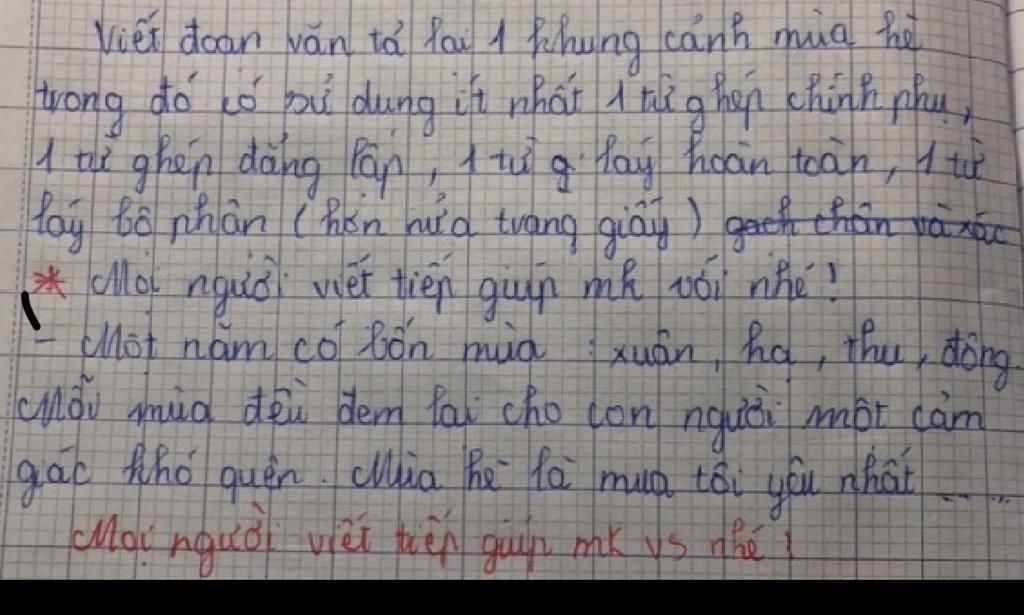 Viết đoạn văn tả lại 1 khung cảnh mùa hè
trong đó có sử dụng ít nhất 1 từ ghép chính phụ,
1 từ ghép đẳng lập, 1 từ g láy hoàn toàn, 1 từ
láy bộ phận (hơn nửa trang giấy) gạch chân và xác
* Mọi người viết tiếp giúp mk với nhé!
- Một năm có bốn mùa : xuân, hạ, thu, đông.
Mỗi mùa đều đem lại cho con người một cảm
giác khó quên. Mùa hè là mùa tôi yêu nhất ......
Mọi người viết tiếp giúp mk vs nhé!